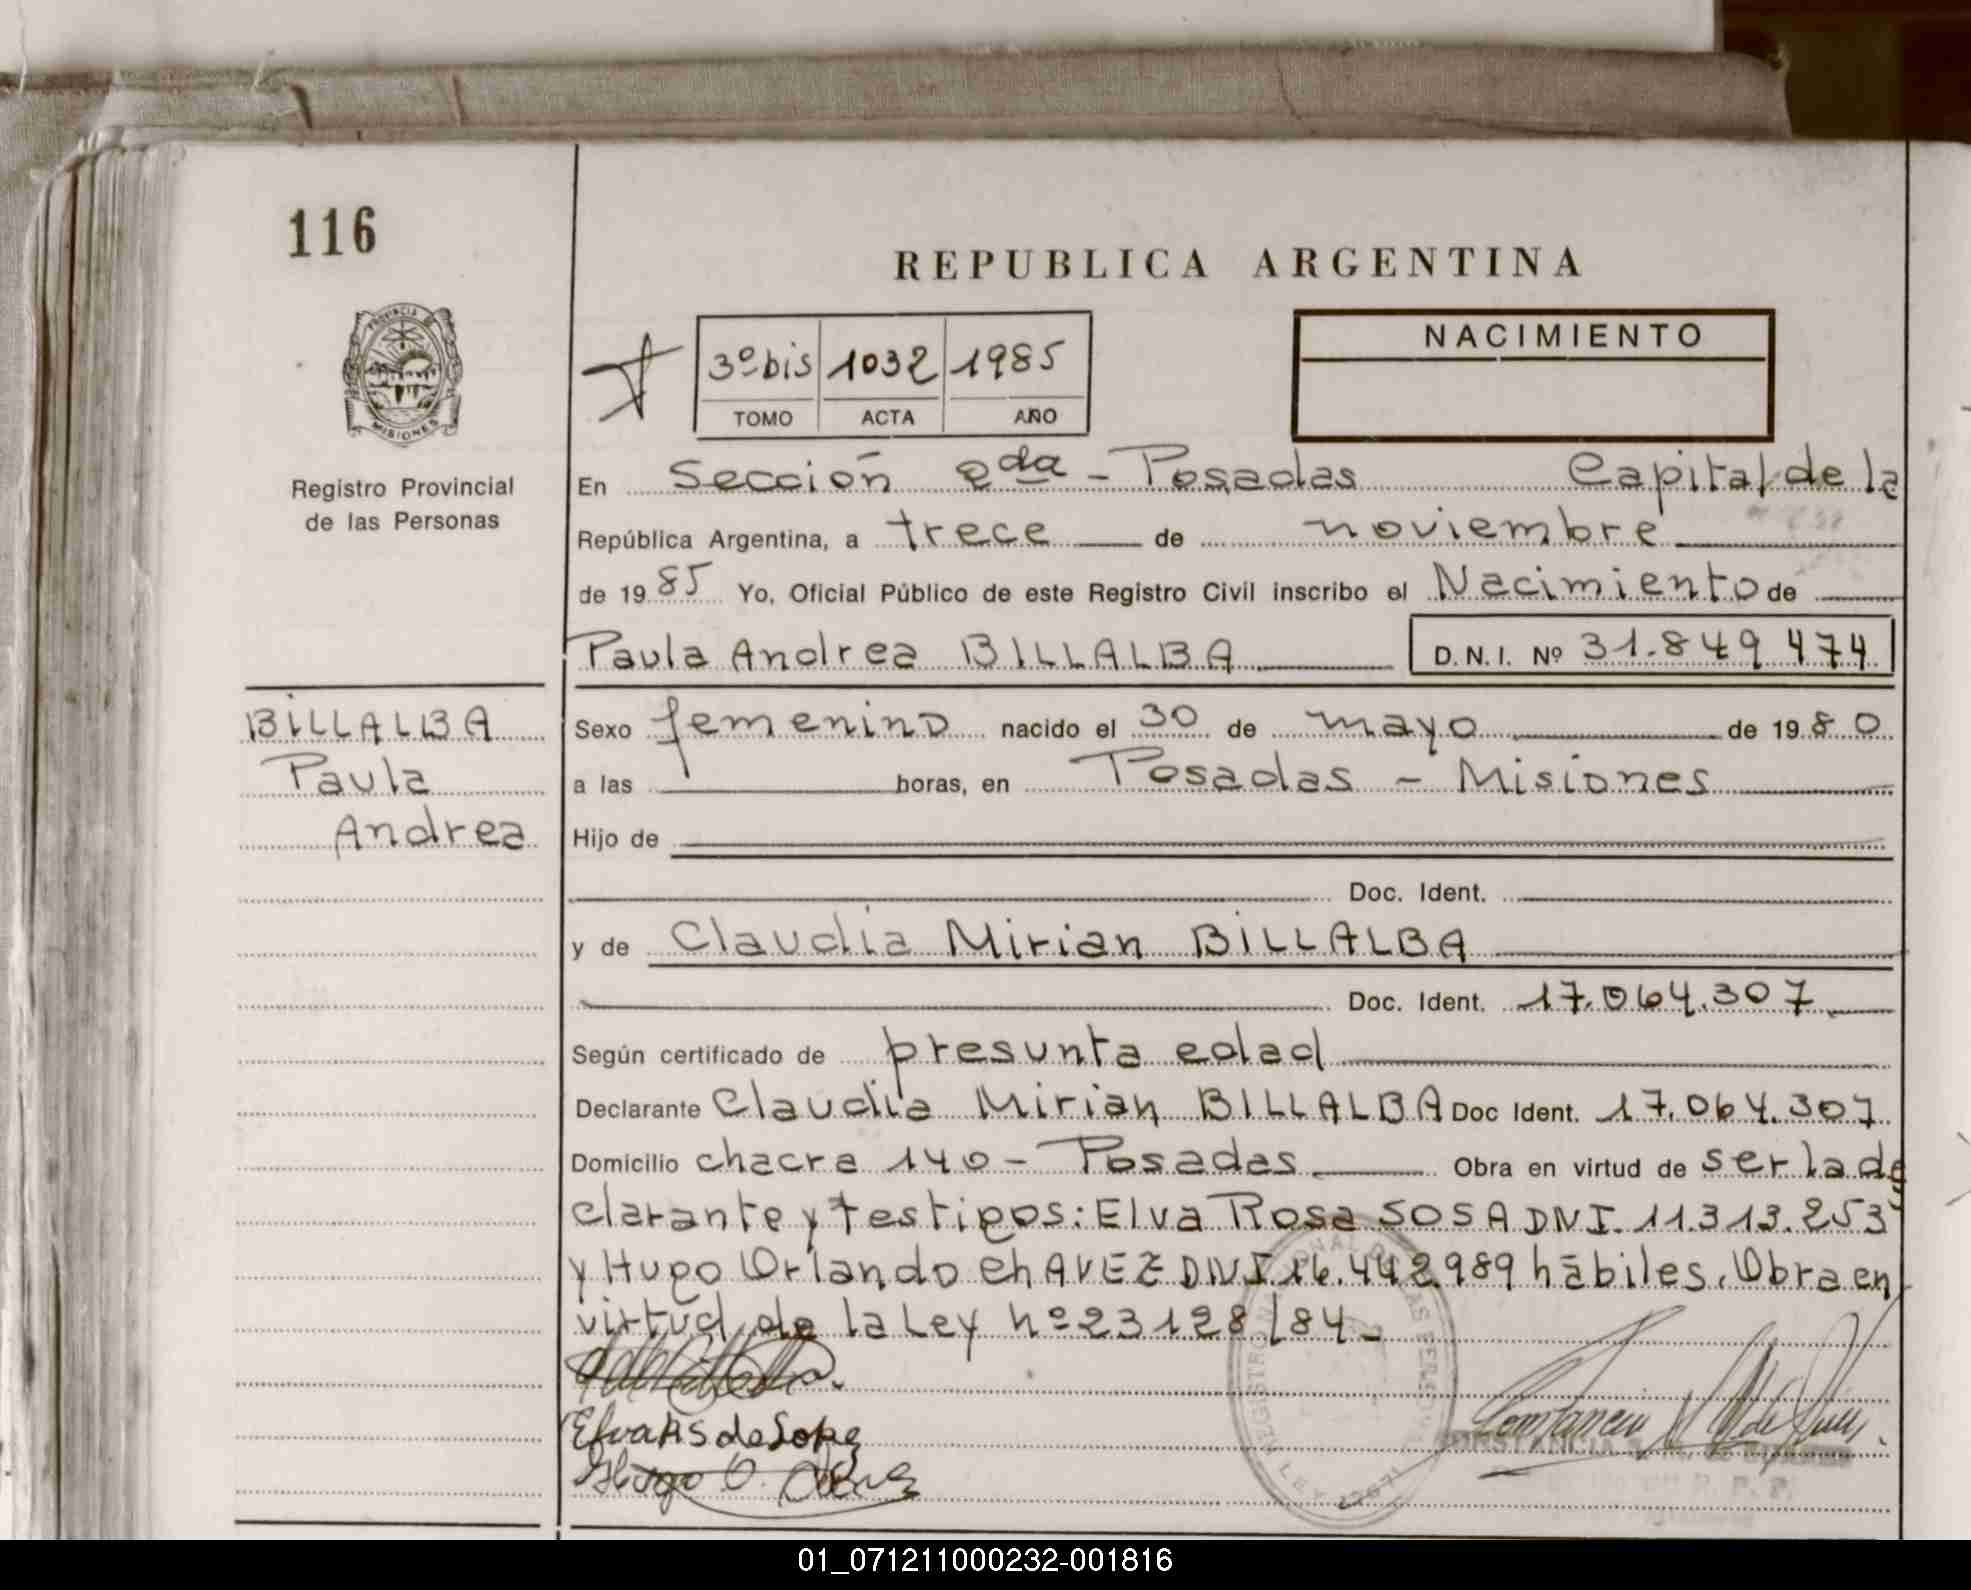 116
REPUBLICA ARGENTINA
PROVINCIA DE
MISIONES
Registro Provincial
de las Personas
3º bis 1032 1985
TOMO ACTA AÑO
NACIMIENTO
En Sección 2da - Posadas Capital de la
República Argentina, a trece de noviembre
de 1985 Yo, Oficial Público de este Registro Civil inscribo el Nacimiento de
Paula Andrea BILLALBA D.N.I. Nº 31.849.474
BILLALBA
Paula
Andrea
Sexo femenino nacido el 30 de mayo de 1980
a las horas, en Posadas - Misiones
Hijo de
Doc. Ident.
y de Claudia Mirian BILLALBA
Doc. Ident. 17.064.307
Según certificado de presunta edad
Declarante Claudia Mirian BILLALBA Doc Ident. 17.064.307
Domicilio chacra 140 - Posadas Obra en virtud de ser la de
clarante y testigos: Elva Rosa SOSA DNI. 11.313.253
y Hugo Orlando ChAVEZ DNI 16.442.989 hábiles. Obra en
virtud de la Ley nº 23128/84-
Hugo O.
01_071211000232-001816